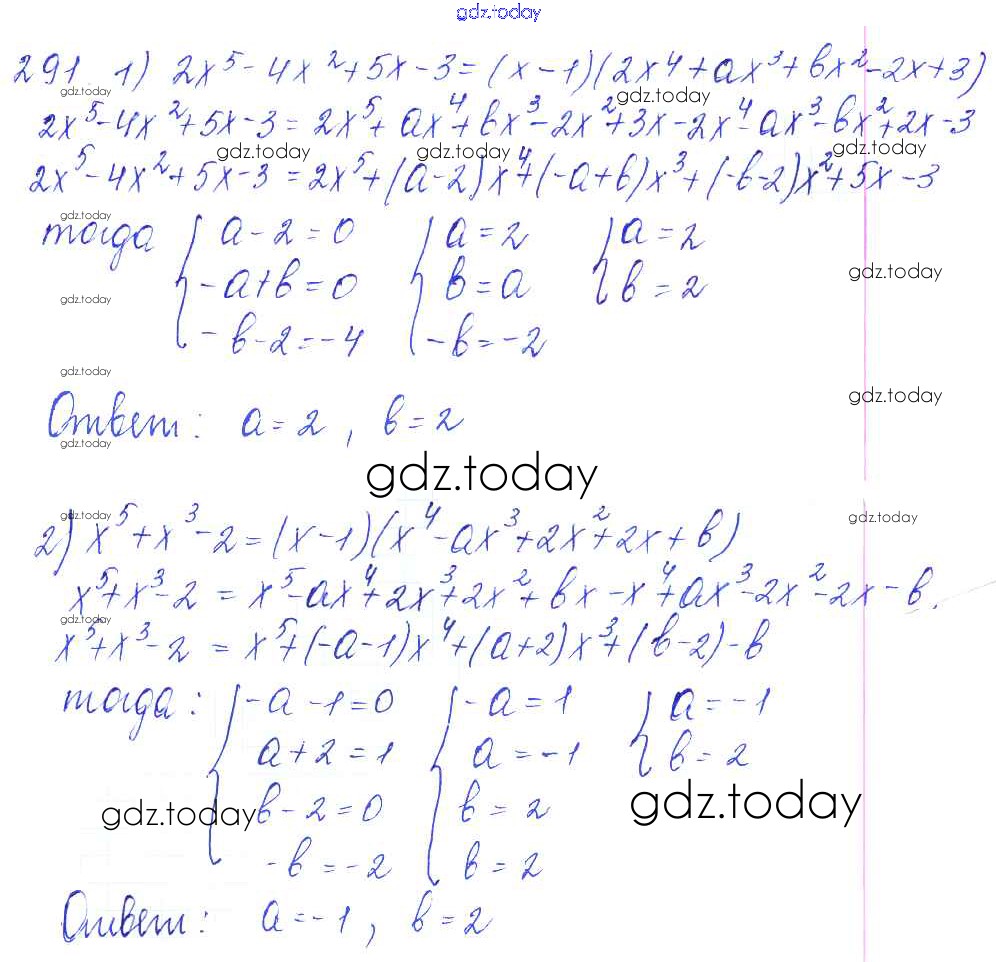 gdz.today
291 1) 2x⁵-4x²+5x-3=(x-1)(2x⁴+ax³+bx²-2x+3)
gdz.today gdz.today
2x⁵-4x²+5x-3=2x⁵+ax⁴+bx³-2x²+3x-2x⁴-ax³-bx²+2x-3
gdz.today gdz.today gdz.today
2x⁵-4x²+5x-3=2x⁵+(a-2)x⁴+(-a+b)x³+(-b-2)x²+5x-3
gdz.today
тогда { a-2=0 { a=2 { a=2
gdz.today
-a+b=0 b=a b=2
gdz.today
-b-2=-4 -b=-2
gdz.today
gdz.today
Ответ: a=2, b=2
gdz.today
gdz.today
gdz.today gdz.today
2) x⁵+x³-2=(x-1)(x⁴-ax³+2x²+2x+b)
x⁵+x³-2=x⁵-ax⁴+2x³+2x²+bx-x⁴+ax³-2x²-2x-b.
gdz.today
x⁵+x³-2=x⁵+(-a-1)x⁴+(a+2)x³+(b-2)-b
тогда: { -a-1=0 { -a=1 { a=-1
a+2=1 a=-1 b=2
gdz.today b-2=0 b=2 gdz.today
-b=-2 b=2
Ответ: a=-1, b=2